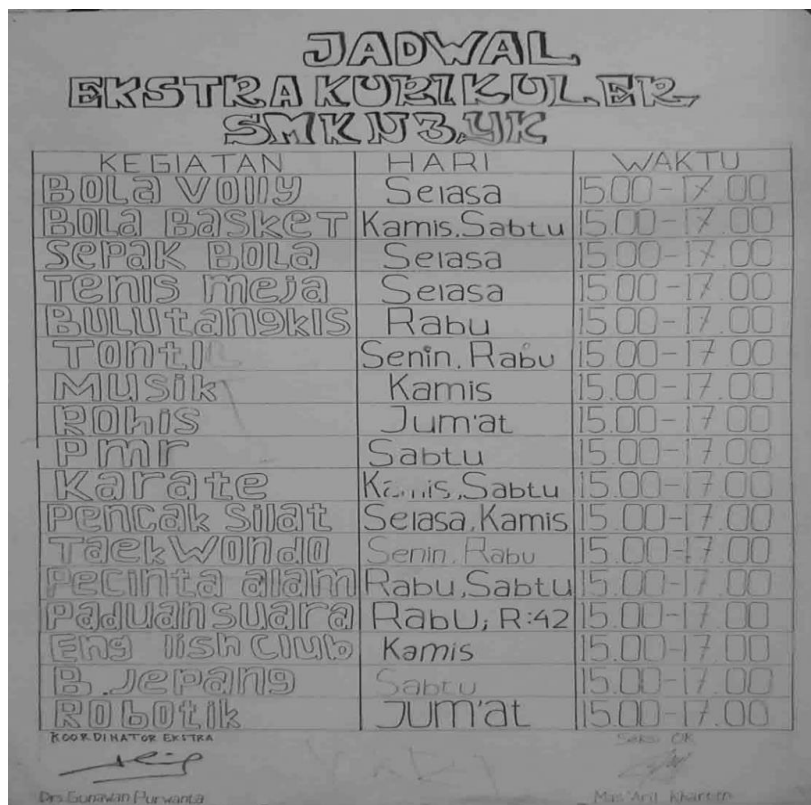 JADWAL
EKSTRA KURIKULER
SMK N 3 YK
KEGIATAN HARI WAKTU
BOLA VOLLY Selasa 15.00-17.00
BOLA BASKET Kamis, Sabtu 15.00-17.00
SEPAK BOLA Selasa 15.00-17.00
Tenis meja Selasa 15.00-17.00
BULUtangkis Rabu 15.00-17.00
TONTI Senin, Rabu 15.00-17.00
MUSIK Kamis 15.00-17.00
ROHIS Jum'at 15.00-17.00
Pmr Sabtu 15.00-17.00
Karate Kamis, Sabtu 15.00-17.00
Pencak Silat Selasa, Kamis 15.00-17.00
TaekWondo Senin, Rabu 15.00-17.00
Pecinta alam Rabu, Sabtu 15.00-17.00
Paduan suara RabU; R:42 15.00-17.00
Eng lish Club Kamis 15.00-17.00
B. Jepang Sabtu 15.00-17.00
Robotik JUM'at 15.00-17.00
KOORDINATOR EKSTRA
Drs Gunawan Purwanta